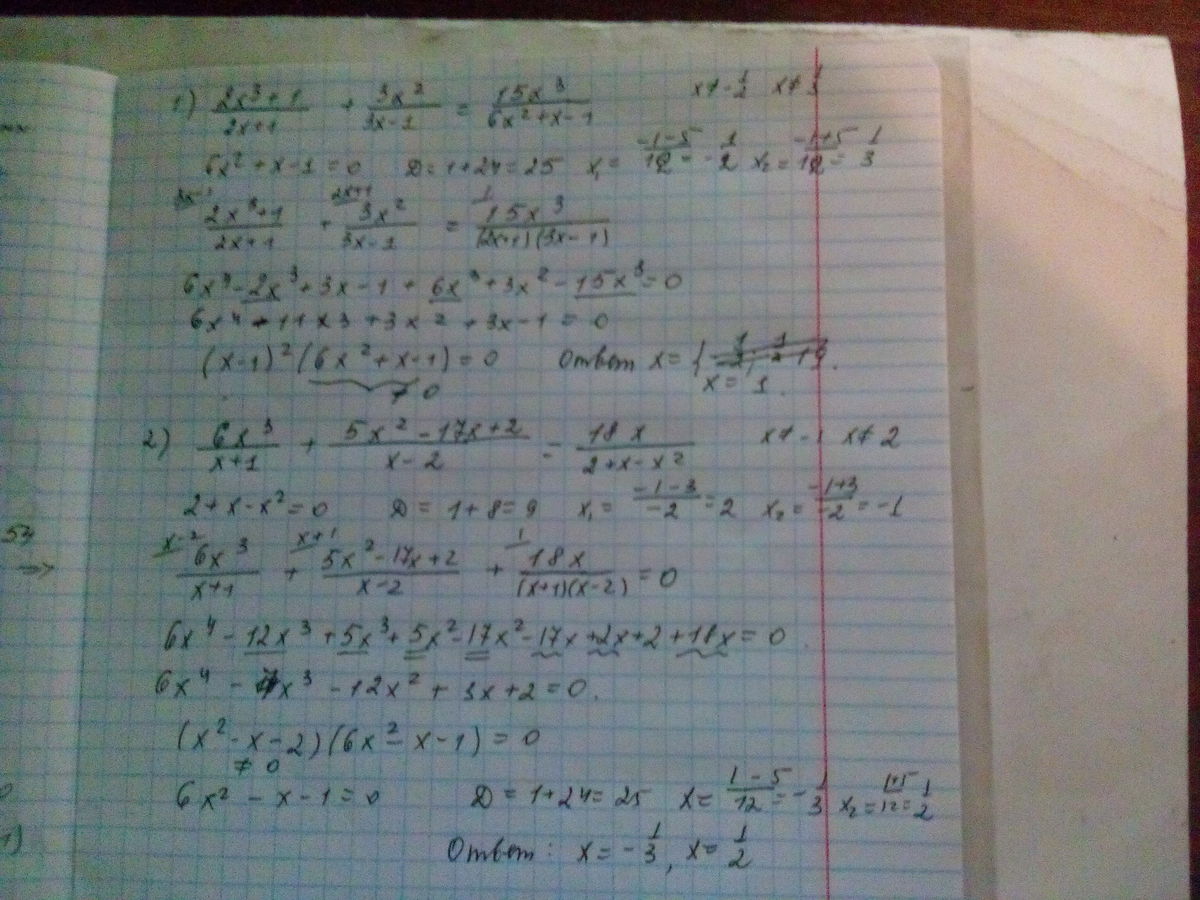 1) (2x³+1)/(2x+1) + 3x²/(3x-1) = 15x³/(6x²+x-1) x≠-1/2 x≠1/3
6x²+x-1=0 D=1+24=25 x₁=(-1-5)/12=-1/2 x₂=(-1+5)/12=1/3
3x-1 2x+1 1
(2x³+1)/(2x+1) + 3x²/(3x-1) = 15x³/((2x+1)(3x-1))
6x⁴-2x³+3x-1+6x³+3x²-15x³=0
6x⁴-11x³+3x²+3x-1=0
(x-1)²(6x²+x-1)=0 Ответ x={
≠0 x=1.
2) 6x³/(x+1) + (5x²-17x+2)/(x-2) = 18x/(2+x-x²) x≠-1 x≠2
2+x-x²=0 D=1+8=9 x₁=(-1-3)/-2=2 x₂=(-1+3)/-2=-1
x-2 x+1 1
6x³/(x+1) + (5x²-17x+2)/(x-2) + 18x/((x+1)(x-2)) =0
6x⁴-12x³+5x³+5x²-17x²-17x+2x+2+18x=0
6x⁴-7x³-12x²+3x+2=0.
(x²-x-2)(6x²-x-1)=0
≠0
6x²-x-1=0 D=1+24=25 x=(1-5)/12=-1/3 x₂=(1+5)/12=1/2
Ответ: x=-1/3, x=1/2
54
→
1)